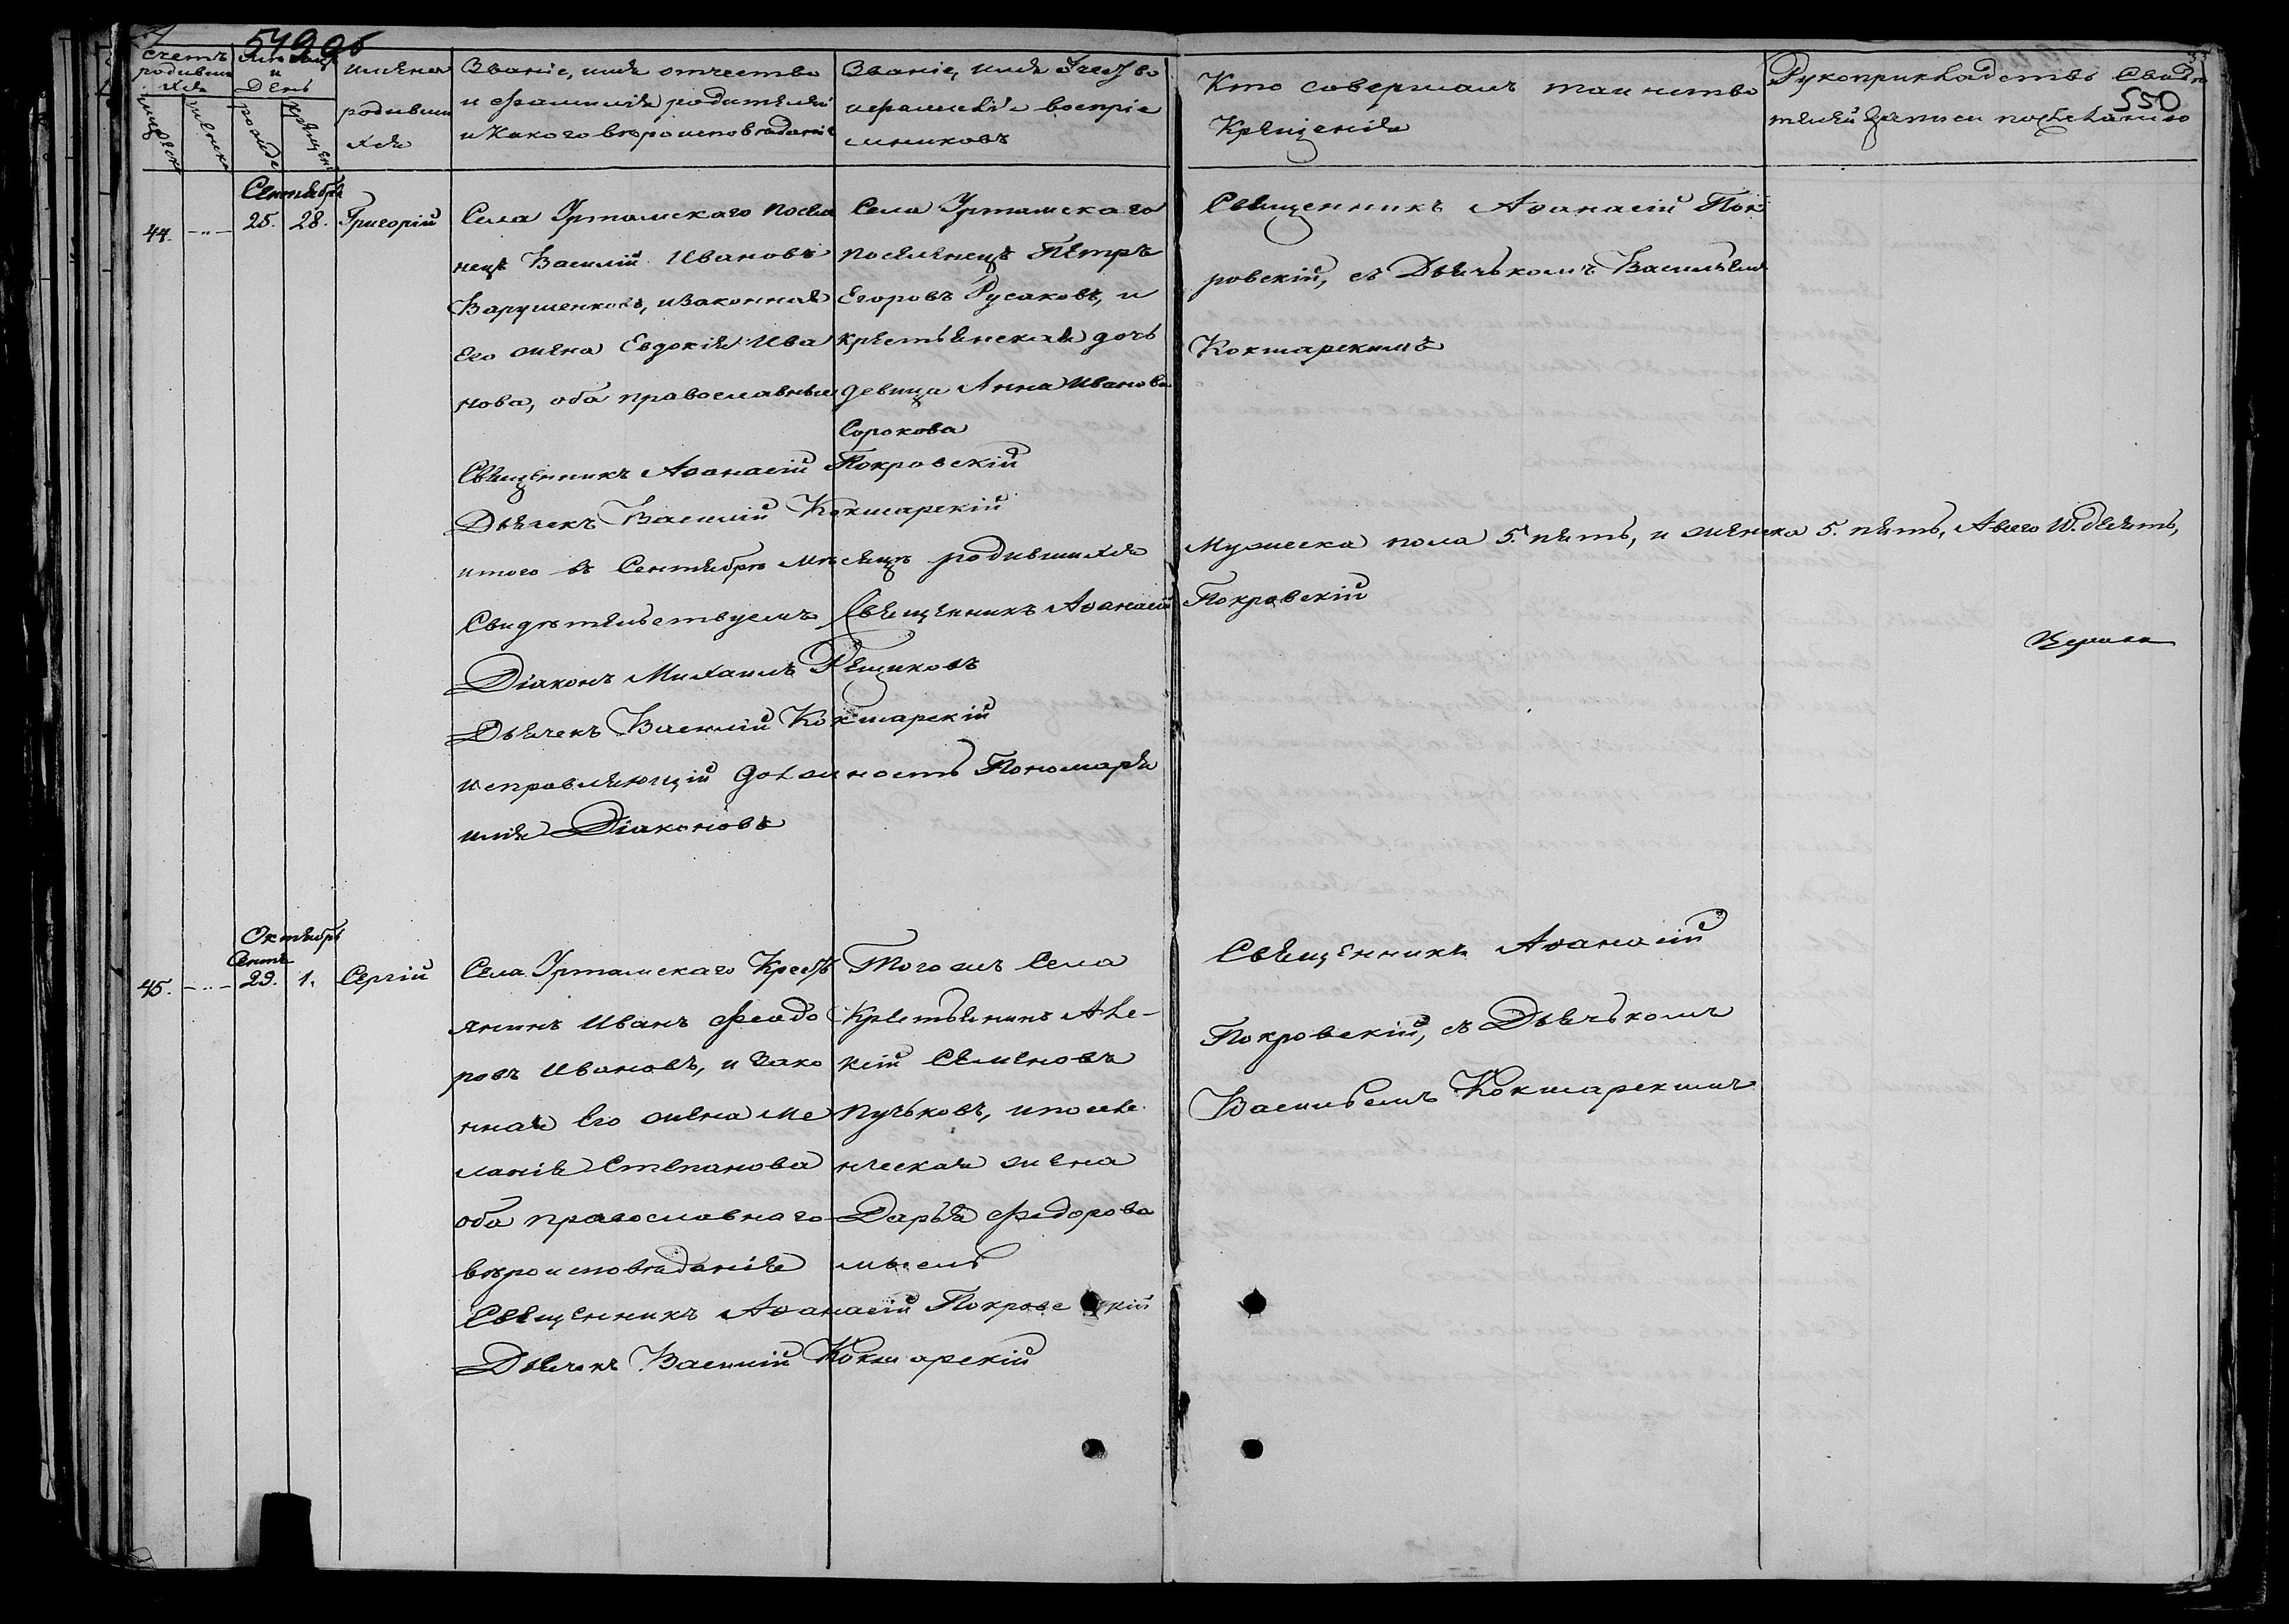 549об
550
счетъ родившихся
мужеска
женска
Мѣсяцъ и День
рожде
крещен
имяна родивши хся
Званіе, имя отчество
и фамилія родителей
и какого вѣроисповѣданіе
Званіе, имя Отечество
и фамилія воспріе
мниковъ
Кто совершалъ таинство
Крещенія
Рукоприкладство Свидѣ
телей записи по желанію
Сентябрь
44. 25. 28. Григорій
Села Уртамскаго поселе
нецъ Василій Ивановъ
Варушенковъ, и законная
его жена Евдокія Ива
нова, оба православныи
Села Уртамскаго
поселенецъ Петръ
Егоровъ Русаковъ, и
крестьянская дочь
девица Анна Иванова
Сорокова
Священникъ Аѳанасій Пок
ровскій, съ Дьячькомъ Васильемъ
Кокшарскимъ
Священникъ Аѳанасій Покровскій
Дьячекъ Василій Кокшарскій
итого въ Сентябрѣ мѣсяцѣ родившихся Мужеска пола 5. пять, и женска 5. пять, А всего 10. десять,
Свидѣтельствуемъ Священникъ Аѳанасій Покровскій
Діаконъ Михаилъ
Дьячекъ Василій Кокшарскій
исправляющій должность Пономаря
Діаконовъ
Октябрь
Сент
45. 29. 1. Сергій
Села Уртамскаго Кресть
янинъ Иванъ Феодо
ровъ Ивановъ, и зако
нная его жена Ме
ланія Степанова
оба православнаго
вѣроисповѣданія
Того жъ Села
Крестьянинъ Але-
ксій Семеновъ
Пучьковъ, и поселе
нческая жена
Дарья Федорова
Священникъ Аѳанасій
Покровскій, съ Дьячькомъ
Васильемъ Кокшарскимъ
Священникъ Аѳанасій Покровскій
Дьячекъ Василій Кокшарскій